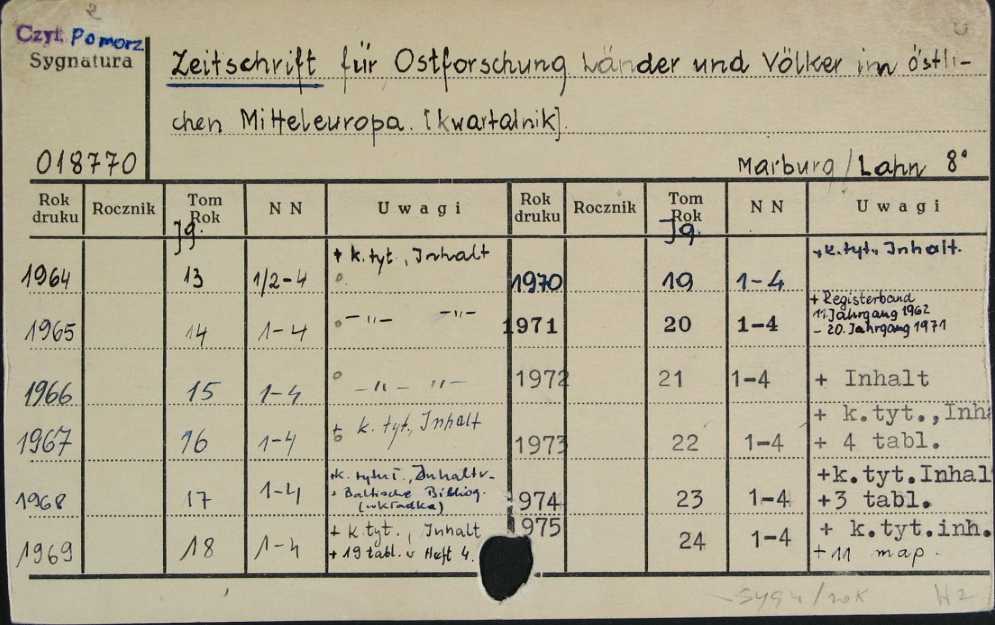 Czyt. Pomorz
Sygnatura
Zeitschrift für Ostforschung Länder und Völker im östli-
chen Mitteleuropa. [kwartalnik].
018770
Marburg/Lahn 8°
Rok druku Rocznik Tom Rok NN Uwagi Rok druku Rocznik Tom Rok NN Uwagi
Jg. Jg.
1964 13 1/2-4 + k. tyt., Inhalt 1970 19 1-4 + k. tyt., Inhalt.
1965 14 1-4 -"- -"- 1971 20 1-4 + Registerband
11. Jahrgang 1962
- 20. Jahrgang 1971
1966 15 1-4 -"- "- 1972 21 1-4 + Inhalt
1967 16 1-4 + k. tyt., Inhalt 1973 22 1-4 + k.tyt., Inh
+ 4 tabl.
1968 17 1-4 +k. tytuł., Inhaltv.
+ Baltische Bibliog.
(wkładka)
974 23 1-4 +k.tyt.Inhal
+3 tabl.
1969 18 1-4 + k. tyt., Inhalt
+ 19 tabl. v Heft 4.
975 24 1-4 + k.tyt.inh.
+ 11 map.